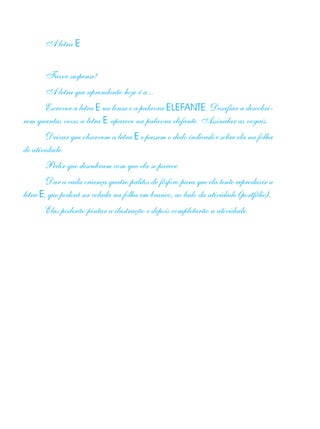 A letra E
Fazer suspense!
A letra que aprenderão hoje é a...
Escrever a letra E na lousa e a palavra ELEFANTE. Desafiar a descobri-
rem quantas vezes a letra E aparece na palavra elefante. Assinalar as vogais.
Deixar que observem a letra E e passem o dedo indicador sobre ela na folha
de atividade.
Pedir que descubram com que ela se parece.
Dar a cada criança quatro palitos de fósforo para que ela tente reproduzir a
letra E, que poderá ser colada na folha em branco, ao lado da atividade (portfólio).
Elas poderão pintar a ilustração e depois completarão a atividade.